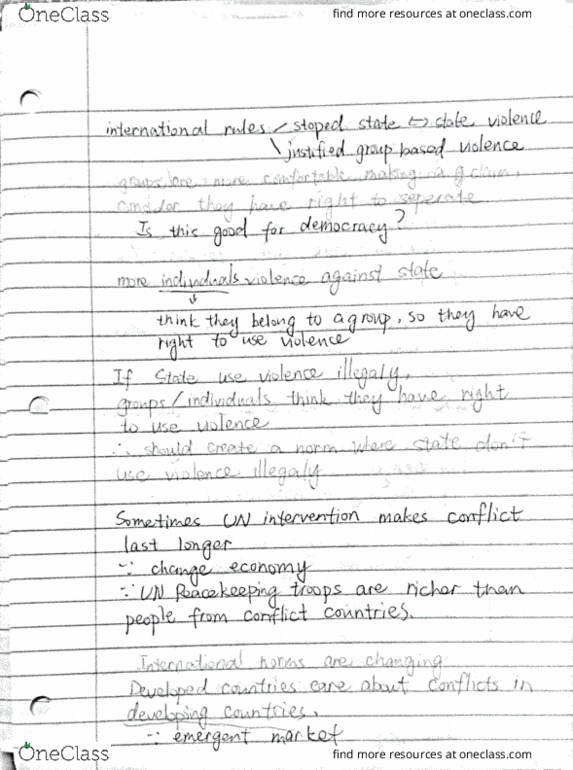 OneClass
find more resources at oneclass.com
international rules / stoped state ↔ state violence
\ justified group based violence
groups are more comfortable making a claim,
consider they have right to seperate
Is this good for democracy?
more individuals violence against state
↓
think they belong to a group, so they have
right to use violence
If State use violence illegaly,
groups/individuals think they have right
to use violence
∴ should create a norm where state don't
use violence illegaly
Sometimes UN intervention makes conflict
last longer
∵ change economy
∵ UN Peacekeeping troops are richer than
people from conflict countries.
International norms are changing
Developed countries care about conflicts in
developing countries.
∵ emergent market
OneClass
find more resources at oneclass.com